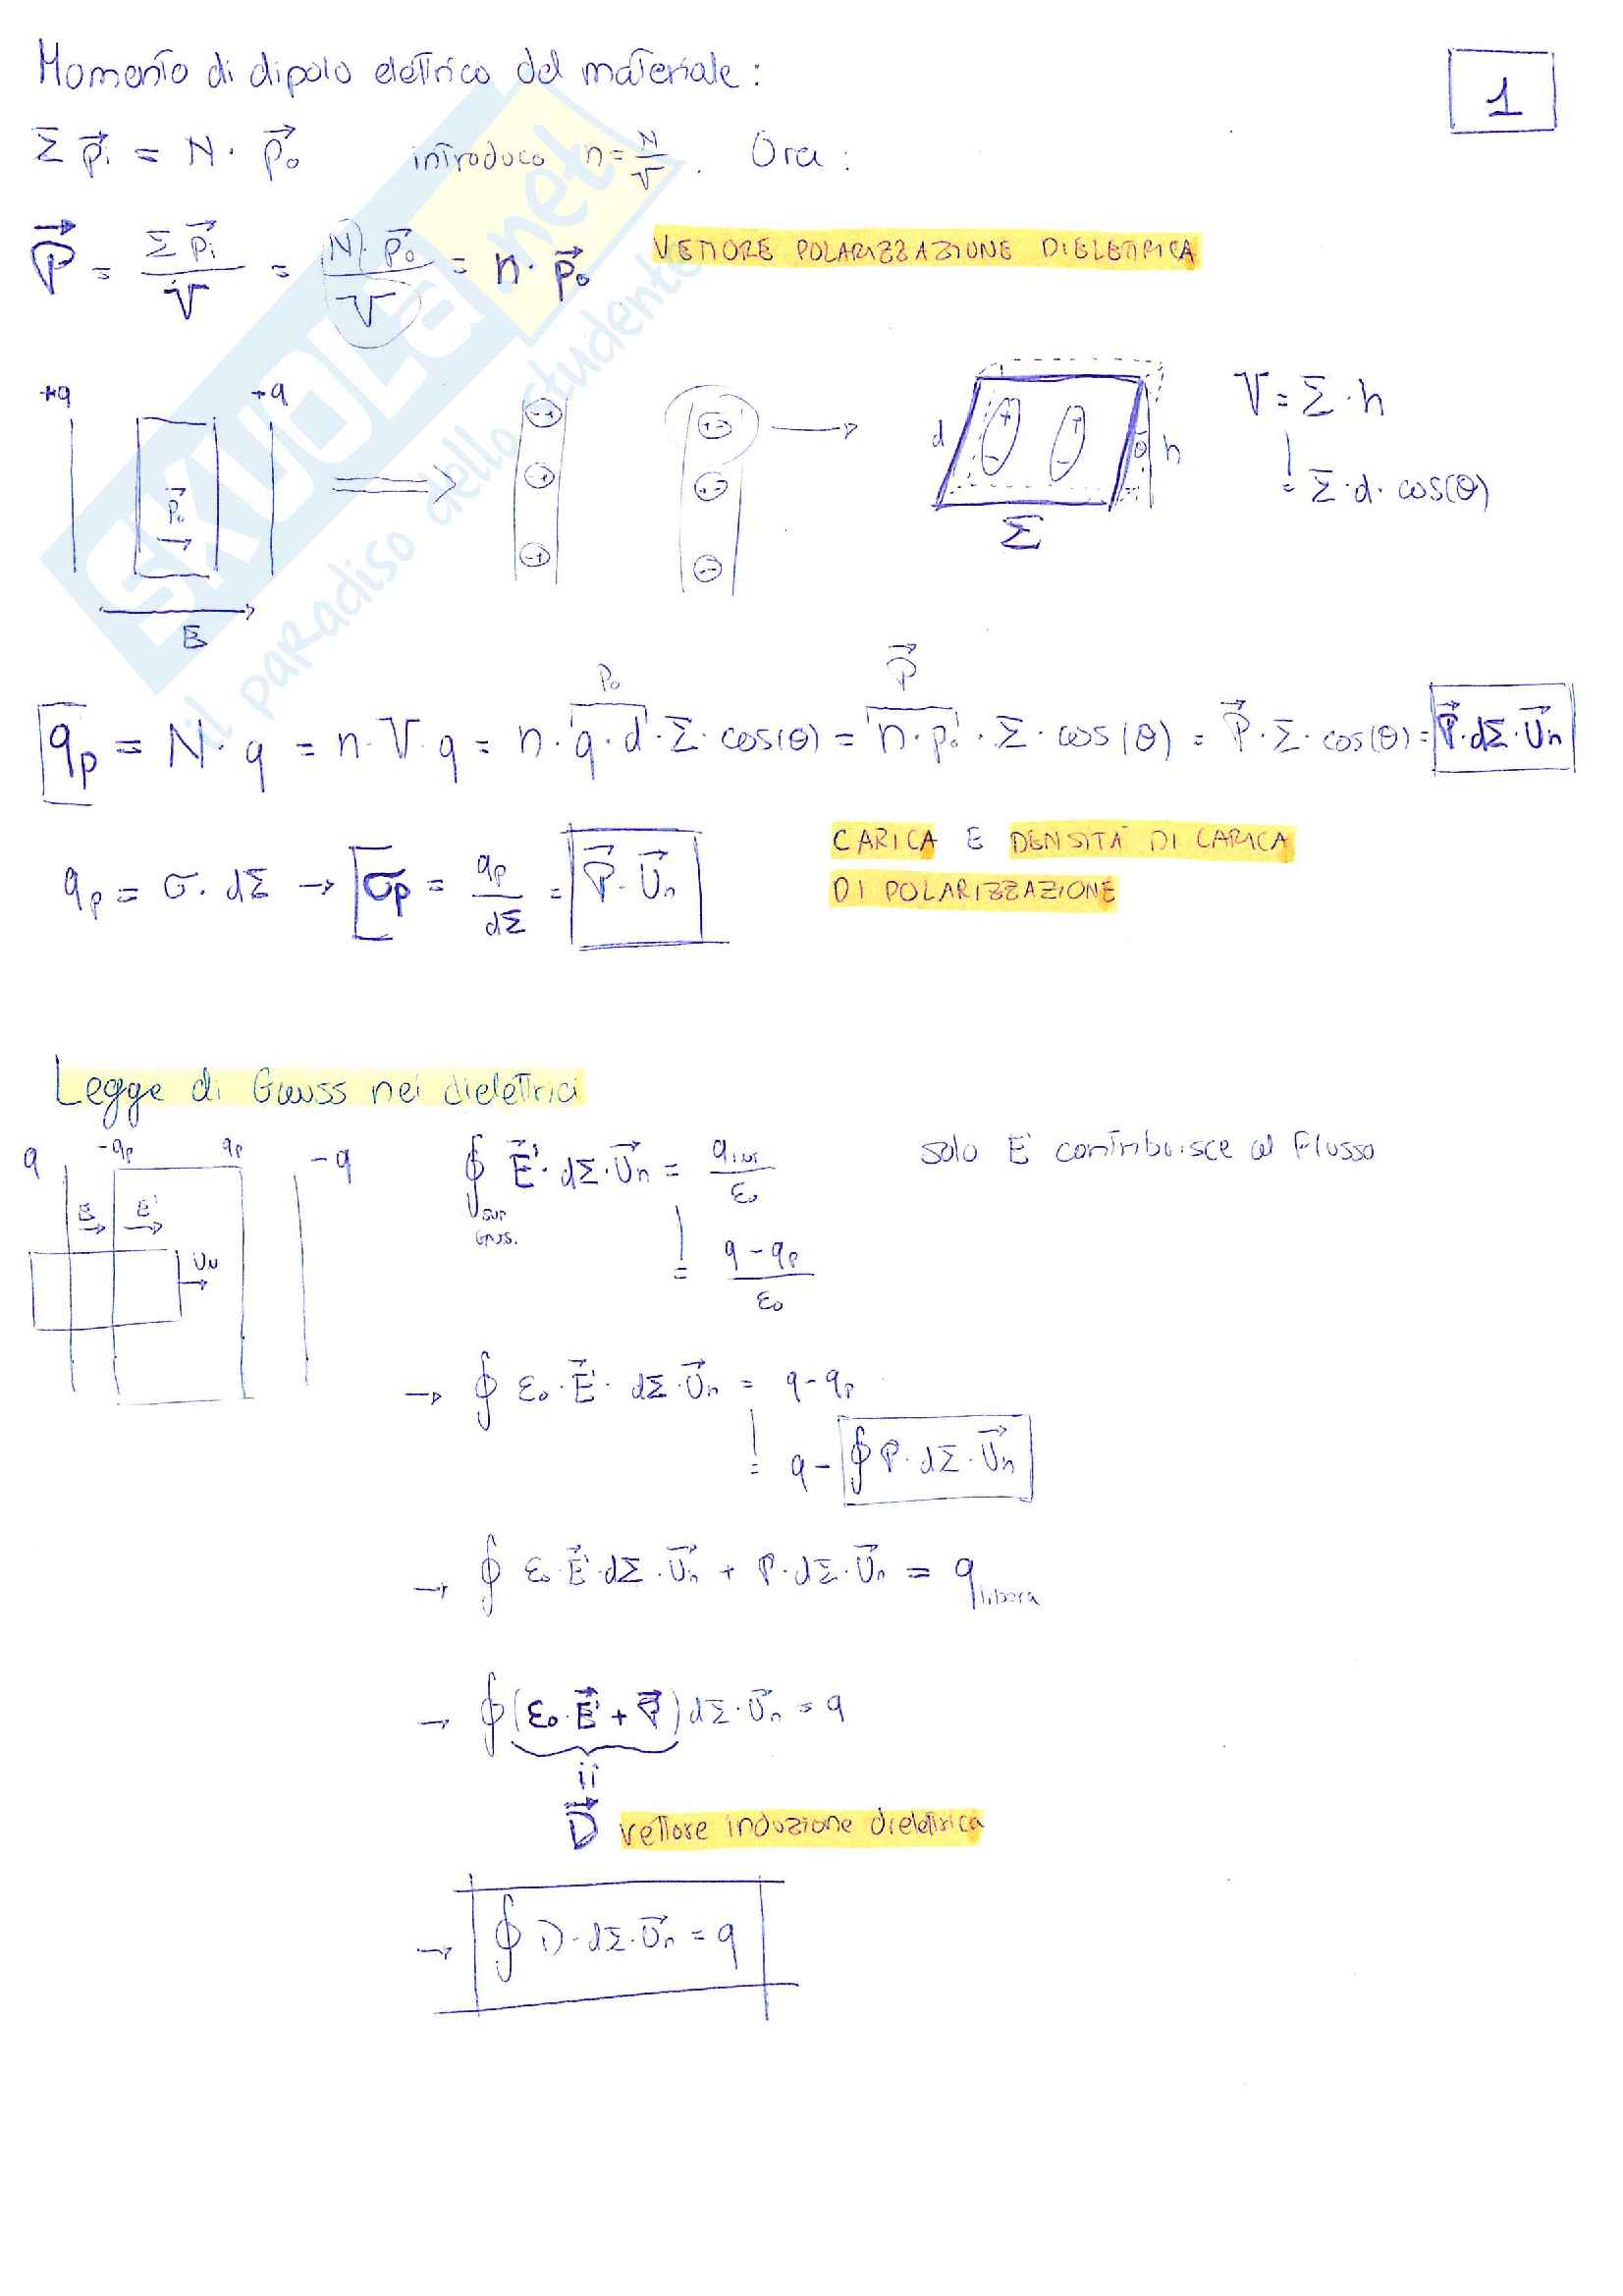 Momento di dipolo elettrico del materiale:
1
Σ p⃗ᵢ = N · p⃗₀ introduco n = N/V . Ora :
P⃗ = Σ p⃗ᵢ / V = N · p⃗₀ / V = n · p⃗₀ VETTORE POLARIZZAZIONE DIELETTRICA
+q +q
p⃗₀
E
d θ h
Σ
V = Σ · h
= Σ · d · cos(θ)
p₀ P⃗
qp = N · q = n · V · q = n · q · d · Σ · cos(θ) = n · p₀ · Σ · cos(θ) = P⃗ · Σ · cos(θ) = P⃗ · dΣ · U⃗n
qp = σ · dΣ → σp = qp / dΣ = P⃗ · U⃗n
CARICA E DENSITÀ DI CARICA
DI POLARIZZAZIONE
Legge di Gauss nei dielettrici
q -qp qp -q
E E'
Un
∮ E⃗' · dΣ · U⃗n = qint / ε₀ solo E' contribuisce al flusso
SUP
GAUS.
= q - qp / ε₀
→ ∮ ε₀ · E⃗' · dΣ · U⃗n = q - qp
= q - ∮ P · dΣ · U⃗n
→ ∮ ε₀ · E⃗' · dΣ · U⃗n + P · dΣ · U⃗n = q libera
→ ∮ (ε₀ · E⃗' + P⃗) dΣ · U⃗n = q
D⃗ vettore induzione dielettrica
→ ∮ D · dΣ · U⃗n = q
SKUOLA.net
il paradiso dello studente